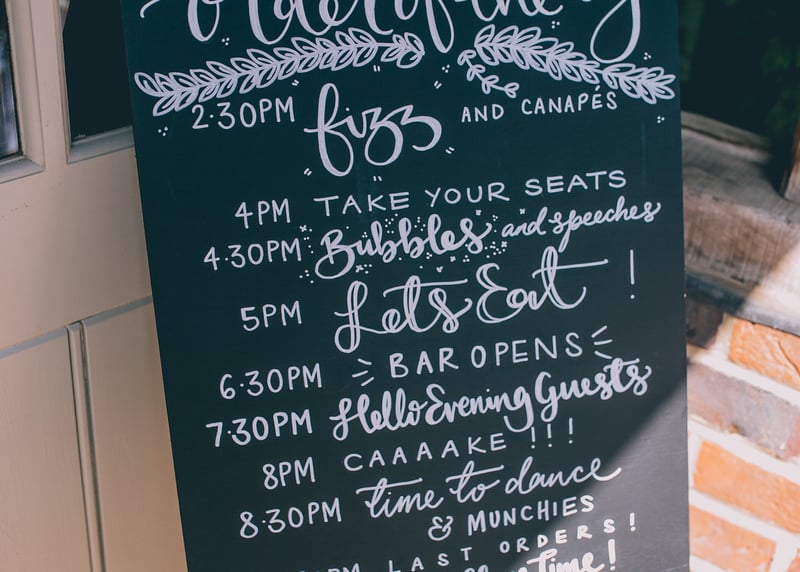 order of the
2.30PM fizz AND CANAPÉS
4PM TAKE YOUR SEATS
4.30PM Bubbles and speeches
5PM Let's Eat !
6.30PM BAR OPENS
7.30PM Hello Evening Guests
8PM CAAAAKE !!!
8.30PM time to dance
& MUNCHIES
PM LAST ORDERS!
time!